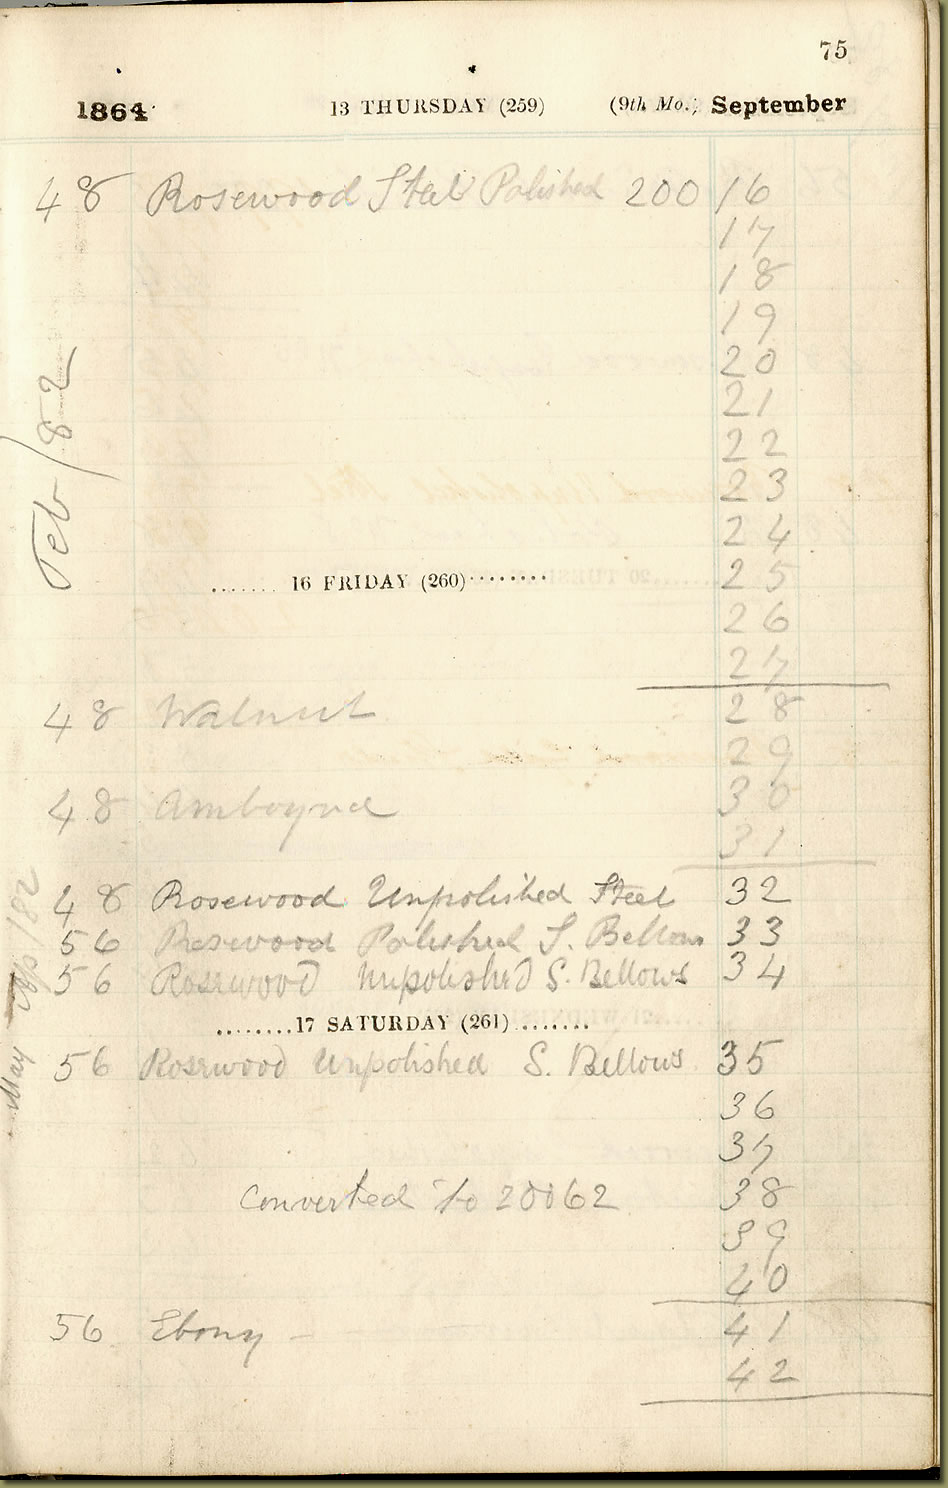 75
1864 13 THURSDAY (259) (9th Mo.) September
48 Rosewood Steel Polished 200 16
17
18
19
20
21
22
23
24
Feb / 82
....... 16 FRIDAY (260) ........ 25
26
27
48 Walnut 28
29
48 Amboyna 30
31
48 Rosewood Unpolished Steel 32
56 Rosewood Polished S. Bellows 33
56 Rosewood Unpolished S. Bellows 34
Ap / 82
........ 17 SATURDAY (261) .......
May
56 Rosewood Unpolished S. Bellows 35
36
37
Converted to 20062 38
39
40
56 Ebony — 41
42